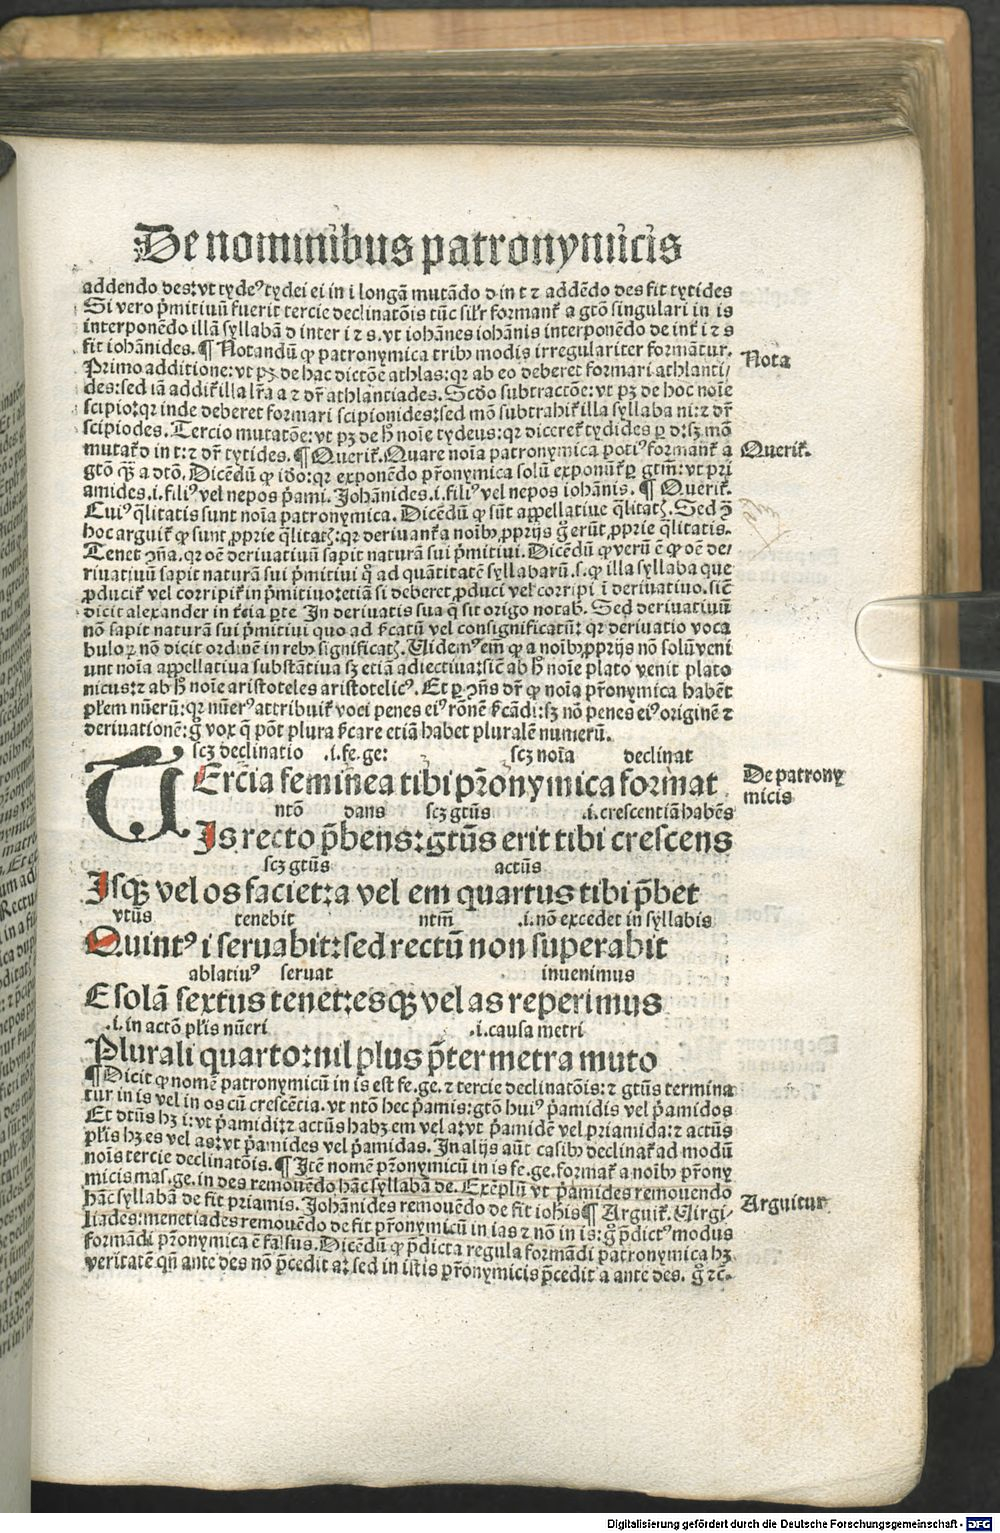 De nominibus patronymicis
addendo des: vt tydeꝰ tydei ei in i longā mutādo d in t ⁊ addēdo des fit tytides
Si vero p̄mitiuū fuerit tercie declinatōis tūc sil'r formant̄ a gtō singulari in is
interponēdo illā syllabā d inter i ⁊ s. vt iohānes iohānis interponēdo de int̄ i ⁊ s
fit iohānides. ¶ Notandū ꝙ patronymica tribꝰ modis irregulariter formātur.
Nota
Primo additione: vt pꝫ de hac dictōe athlas: qꝛ ab eo deberet formari athlanti/
des: sed iā addit̄ illa lr̄a a ⁊ dr̄ athlantiades. Scdo subtractōe: vt pꝫ de hoc noīe
scipio: qꝛ inde deberet formari scipionides: sed mō subtrahit̄ illa syllaba ni: ⁊ dr̄
scipiodes. Tercio mutatōe: vt pꝫ de h̄ noīe tydeus: qꝛ diceret̄ tydides ꝑ d: sꝫ mō
mutat̄ d in t: ⁊ dr̄ tytides. ¶ Querit̄. Quare noīa patronymica potiꝰ formant̄ a
Querit̄.
gtō qꝫ a dtō. Dicēdū ꝙ iđo: qꝛ exponēdo pr̄onymica solū exponūt̄ ꝑ gtm̄: vt pri
amides .i. filiꝰ vel nepos p̄ami. Johānides .i. filiꝰ vel nepos iohānis. ¶ Querit̄.
Cuiꝰ q̄litatis sunt noīa patronymica. Dicēdū ꝙ sūt appellatiue q̄litatꝭ. Sed ꝯ̄
hoc arguit̄ ꝙ sunt ꝓprie q̄litatꝭ: qꝛ deriuant̄ a noībꝰ ꝓprijs ḡ erūt ꝓprie q̄litatis.
Tenet ꝯn̄a. qꝛ oē deriuatiuū sapit naturā sui p̄mitiui. Dicēdū ꝙ verū ē ꝙ oē de/
riuatiuū sapit naturā sui p̄mitiui q̄ ad quātitatē syllabarū .s. ꝙ illa syllaba que
ꝓducit̄ vel corripit̄ in p̄mitiuo: etiā si deberet ꝓduci vel corripi ī deriuatiuo. sic̄
dicit alexander in t̄cia ꝑte In deriuatis sua q̄ sit origo notab̄. Sed deriuatiuū
nō sapit naturā sui p̄mitiui quo ad st̄catū vel consignificatū: qꝛ deriuatio voca
buloꝝ nō dicit ordinē in rebꝰ significatꝭ. Uidemꝰ em̄ ꝙ a noībꝰ ꝓprijs nō solū veni
unt noīa appellatiua substātiua sꝫ etiā adiectiua: sic̄ ab h̄ noīe plato venit plato
nicus: ⁊ ab h̄ noīe aristoteles aristotelicꝰ. Et ꝑ ꝯn̄s dr̄ ꝙ noīa pr̄onymica habēt
pl'em nūerū: qꝛ nūerꝰ attribuit̄ voci penes eiꝰ rōnē st̄cādi: sꝫ nō penes eiꝰ originē ⁊
deriuationē: ḡ vox q̄ pōt plura st̄care etiā habet pluralē numerū.
scꝫ declinatio .i. fe. ge: scꝫ noīa declinat
TErcia feminea tibi pr̄onymica format
De patrony
micis
ntō dans scꝫ gtūs .i. crescentiā habēs
Is recto p̄bens: gtūs erit tibi crescens
scꝫ gtūs actūs
Isqꝫ vel os faciet: a vel em quartus tibi p̄bet
vtūs tenebit ntm̄ .i. nō excedet in syllabis
Quintꝰ i seruabit: sed rectū non superabit
ablatiuꝰ seruat inuenimus
E solā sextus tenet: esqꝫ vel as reperimus
.i. in actō pl'is nūeri .i. causa metri
Plurali quarto: nil plus p̄ter metra muto
¶ Dicit ꝙ nomē patronymicū in is est fe. ge. ⁊ tercie declinatōis: ⁊ gtūs termina
tur in is vel in os cū crescētia. vt ntō hec p̄amis: gtō huiꝰ p̄amidis vel p̄amidos
Et dtūs hꝫ i: vt p̄amidi: ⁊ actūs habꝫ em vel a: vt p̄amidē vel priamida: ⁊ actūs
pl'is hꝫ es vel as: vt p̄amides vel p̄amidas. In alijs aūt casibꝰ declinat̄ ad modū
nois tercie declinatōis. ¶ Itē nomē pr̄onymicū in is fe. ge. format̄ a noībꝰ pr̄ony
micis mas. ge. in des remouēdo hāc syllabā de. Exēplū vt p̄amides remouendo
hāc syllabā de fit priamis. Johānides remouēdo de fit ioh̄is ¶ Arguit̄. Uirgi/
Arguitur
liades: menetiades remouēdo de fit pr̄onymicū in ias ⁊ nō in is: ḡ p̄dictꝰ modus
formādi pr̄onymica ē falsus. Dicēdū ꝙ p̄dicta regula formādi patronymica hꝫ
veritatē qn̄ ante des nō p̄cedit a: sed in istis pr̄onymicis p̄cedit a ante des. ḡ ⁊c̄.
Digitalisierung gefördert durch die Deutsche Forschungsgemeinschaft - DFG